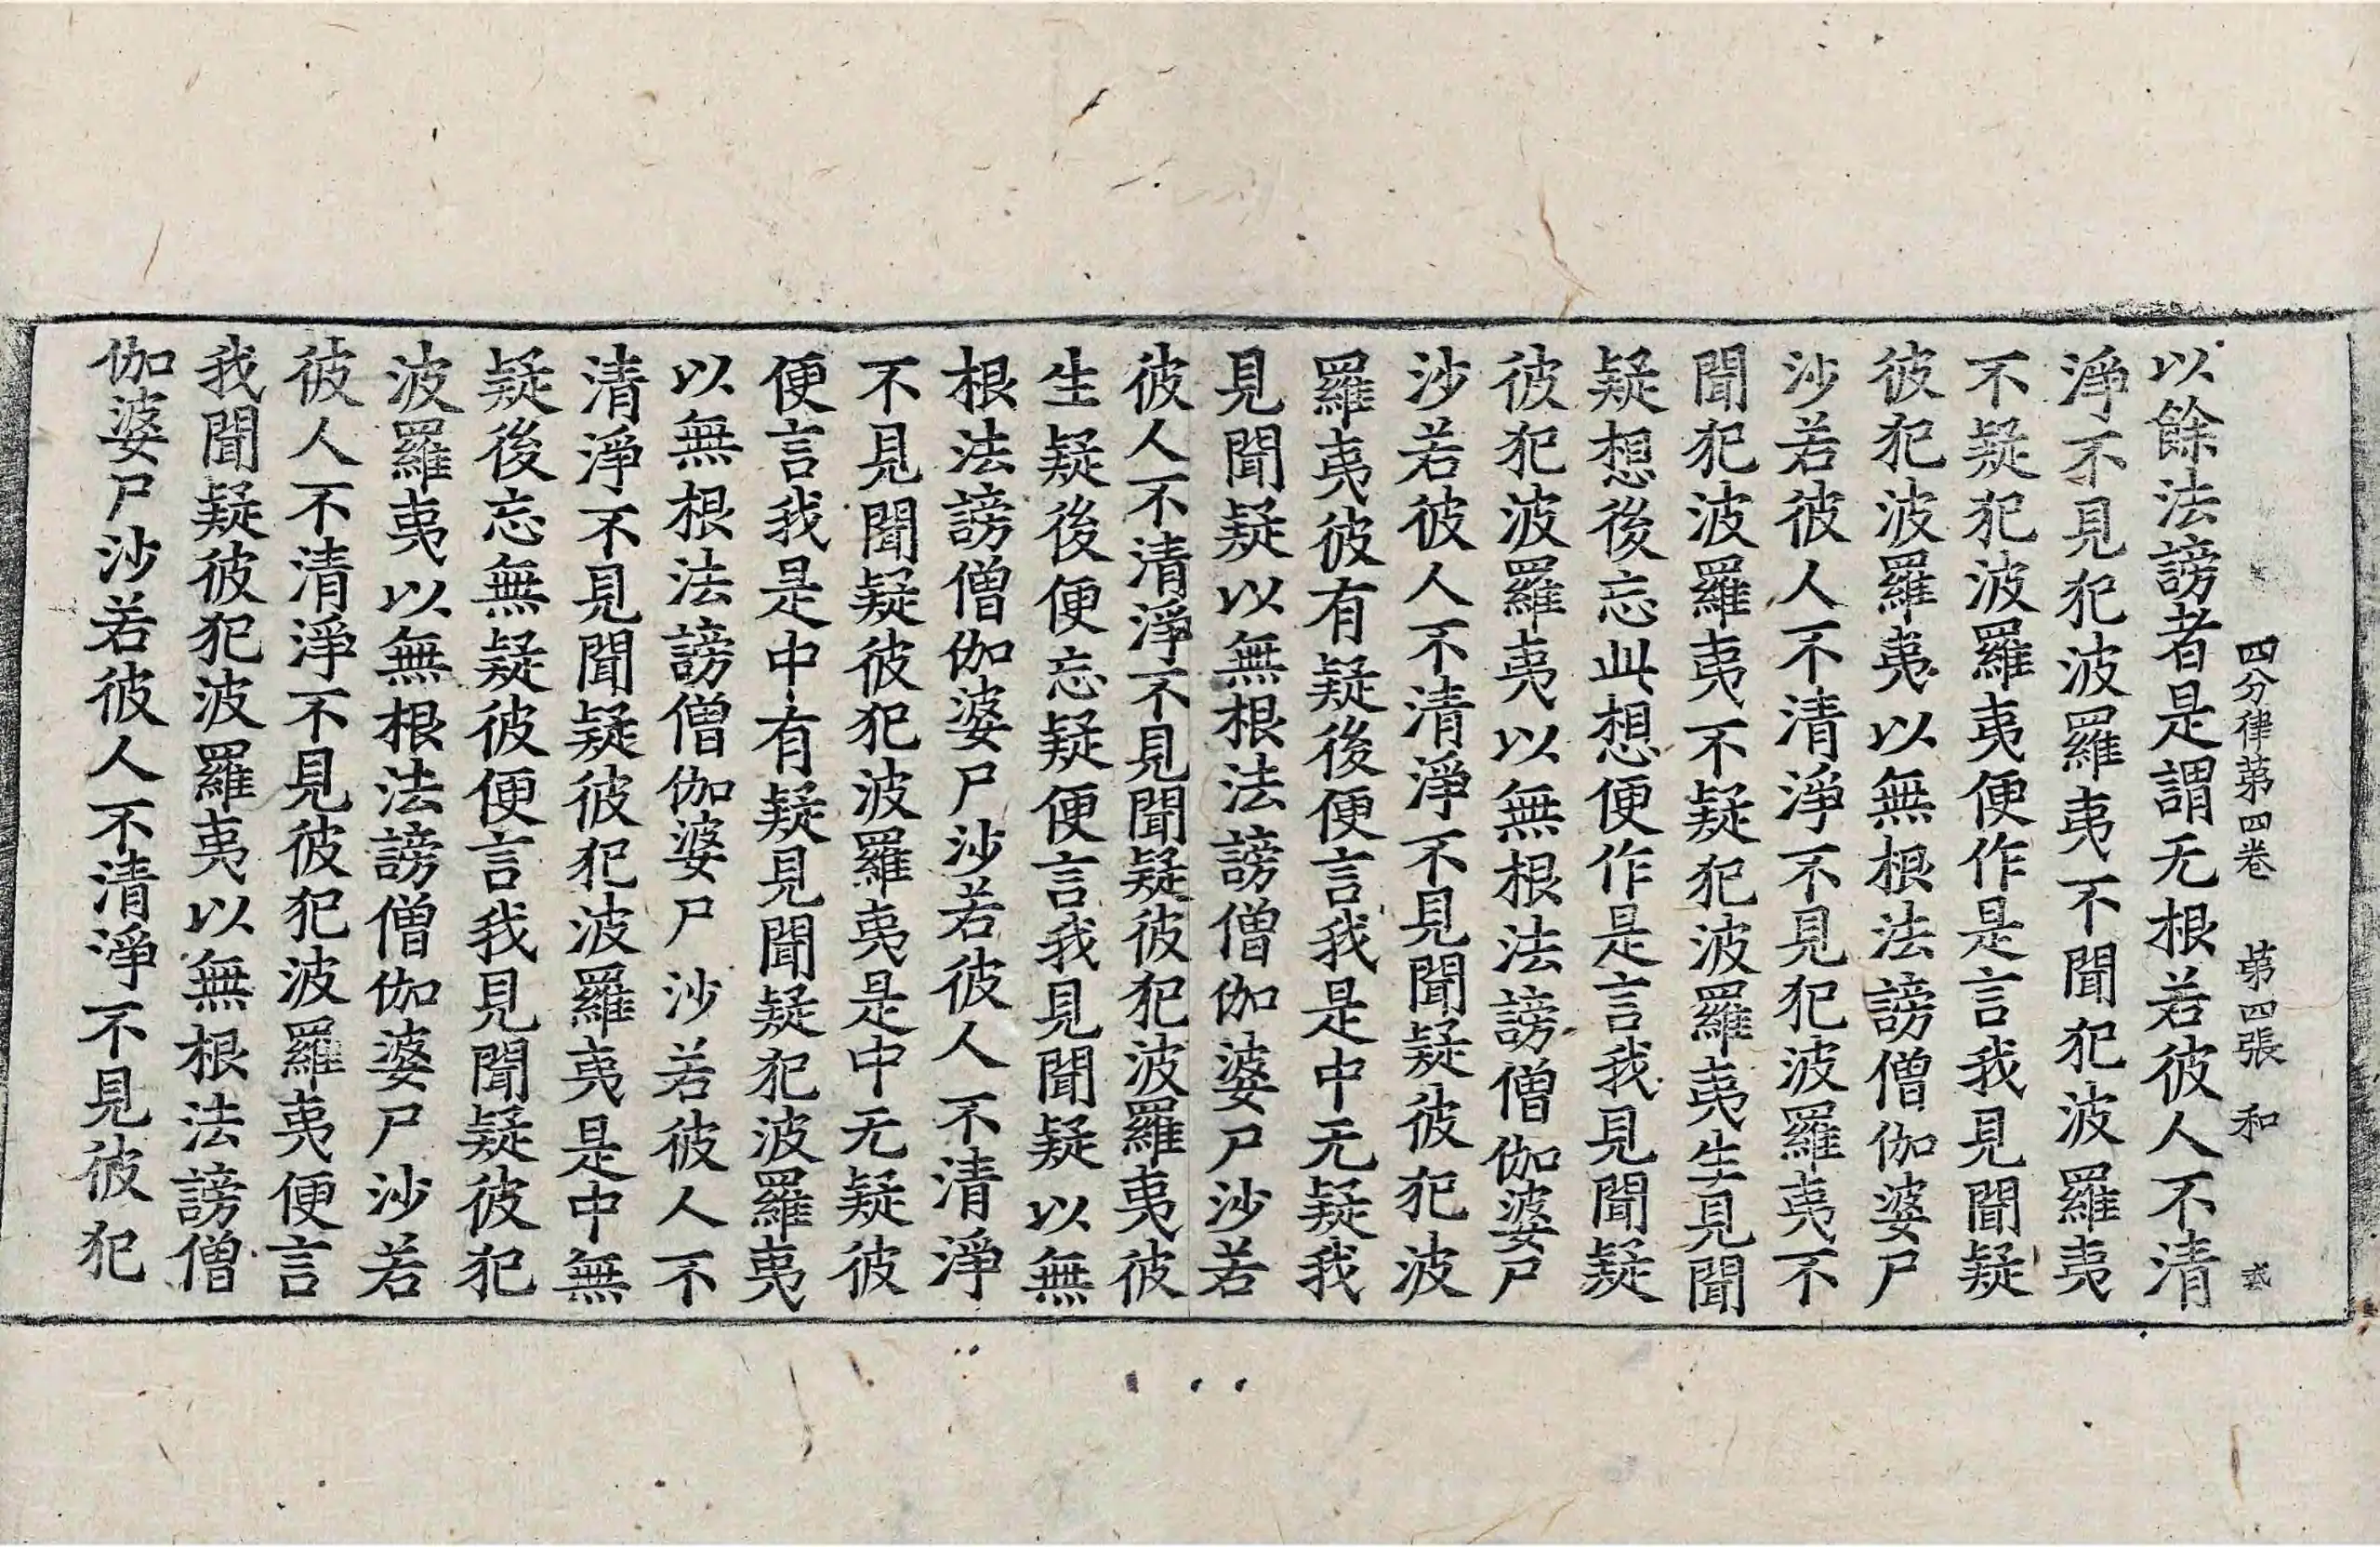 四分律第四卷　第四張　和　㢤
以餘法謗者是謂无根若彼人不清
淨不見犯波羅夷不聞犯波羅夷
不疑犯波羅夷便作是言我見聞疑
彼犯波羅夷以無根法謗僧伽婆尸
沙若彼人不清淨不見犯波羅夷不
聞犯波羅夷不疑犯波羅夷生見聞
疑想後忘此想便作是言我見聞疑
彼犯波羅夷以無根法謗僧伽婆尸
沙若彼人不清淨不見聞疑彼犯波
羅夷彼有疑後便言我是中无疑我
見聞疑以無根法謗僧伽婆尸沙若
彼人不清淨不見聞疑彼犯波羅夷彼
生疑後便忘疑便言我見聞疑以無
根法謗僧伽婆尸沙若彼人不清淨
不見聞疑彼犯波羅夷是中无疑彼
便言我是中有疑見聞疑犯波羅夷
以無根法謗僧伽婆尸沙若彼人不
清淨不見聞疑彼犯波羅夷是中無
疑後忘無疑彼便言我見聞疑彼犯
波羅夷以無根法謗僧伽婆尸沙若
彼人不清淨不見彼犯波羅夷便言
我聞疑彼犯波羅夷以無根法謗僧
伽婆尸沙若彼人不清淨不見彼犯